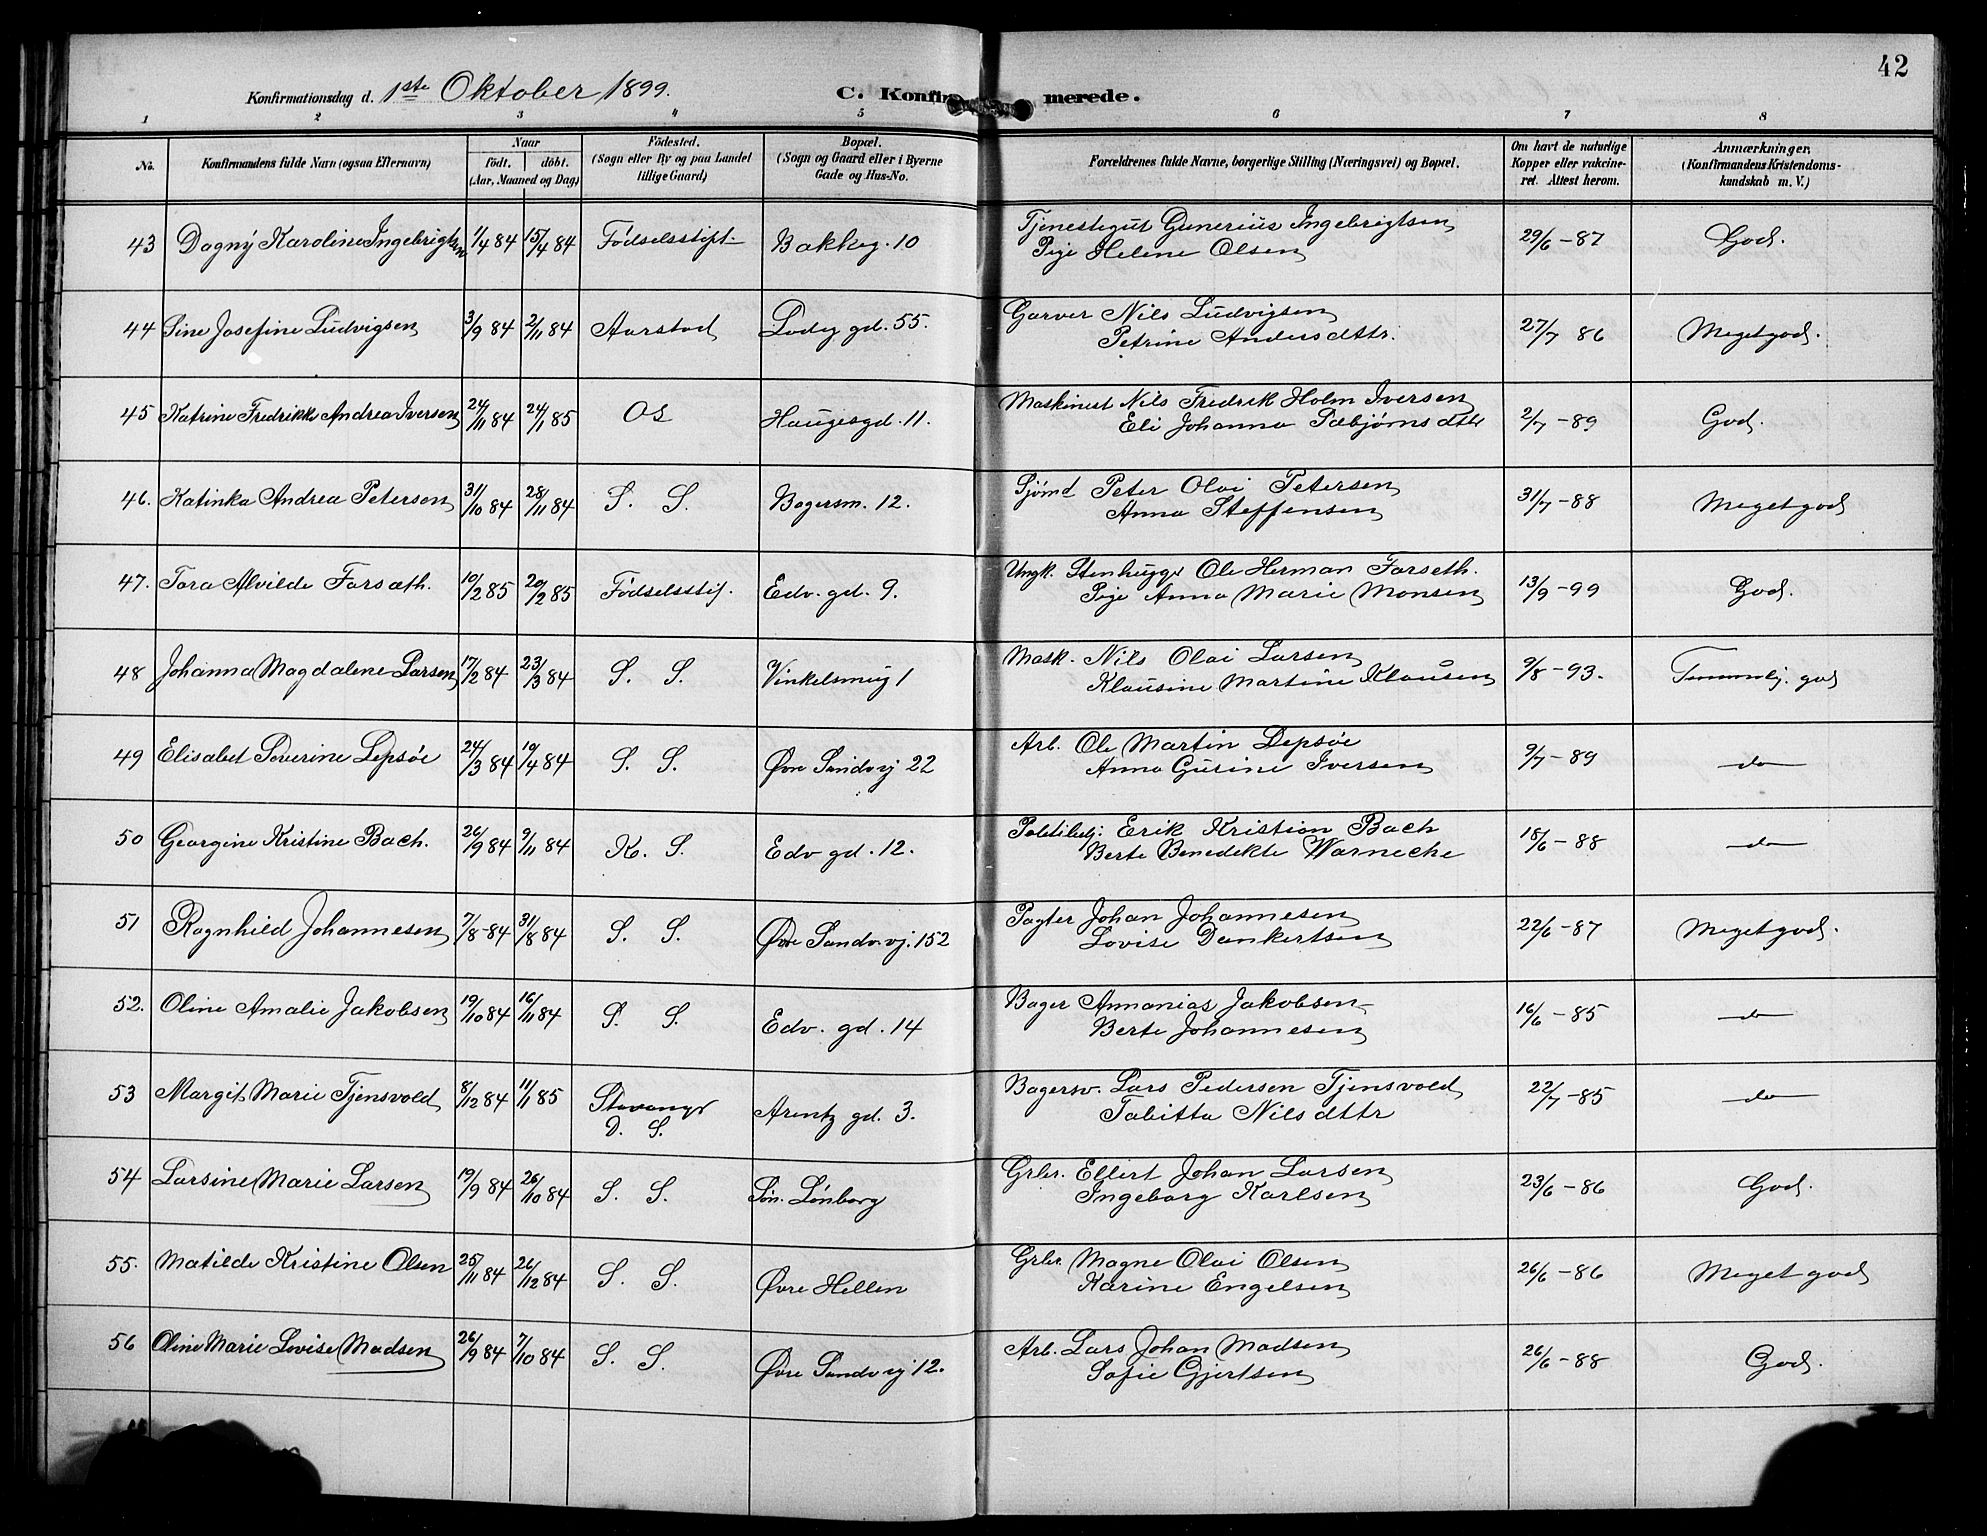 42
Konfirmationsdag d. 1ste Oktober 1899.
C. Konfirmerede.
1 2 3 4 5 6 7 8
No.
Konfirmandens fulde Navn (ogsaa Efternavn)
Naar
født. døbt.
(Aar, Maaned og Dag)
Fødested.
(Sogn eller By og paa Landet
tillige Gaard)
Bopæl.
(Sogn og Gaard eller i Byerne
Gade og Hus-No.
Forældrenes fulde Navne, borgerlige Stilling (Næringsvei) og Bopæl.
Om havt de naturlige
Kopper eller vakcine-
ret. Attest herom.
Anmærkninger.
(Konfirmandens Kristendoms-
kundskab m. V.)
43 Dagny Karoline Ingebrigtsen 1/4 84 15/4 84 Fødselsstift Bakkeg. 10 Tjenestegut Gunerius Ingebrigtsen 29/6-87 God.
Pige Helene Olsen
44 Sine Josefine Ludvigsen 3/9 84 2/11 84 Aarstad Ladeg gd. 55. Garver Nils Ludvigsen 27/7 86 Meget god.
Petrine Andersdttr.
45 Katrine Fredrikke Andrea Iversen 24/11 84 24/1 85 Os Haugesgd. 11. Maskinist Nils Fredrik Holm Iversen 2/7-89 God.
Eli Johanna
46. Katinka Andrea Petersen 31/10 84 28/11 84 S. S. Bagersm. 12. Sjømd Peter Olai Petersen 31/7-88 Meget god
Anna Steffensen
47. Tora Alvilde Forsæth. 10/2 85 20/2 85 Fødselsstif. Edv. gd. 9. Ungk. Stenhugger Ole Herman Forseth. 13/9-99 God.
Pige Anna Marie Monsen
48 Johanna Magdalene Larsen 17/2 84 23/3 84 S. S. Vinkelsmug 1 Mask. Nils Olai Larsen 9/8-93. Temmelig. god
Klausine Martine Klausen
49 Elisabet Severine Lepsøe 24/3 84 19/4 84 S. S. Øvre Sandvj 22 Arb. Ole Martin Lepsøe 9/7-89 do
Anna Gurine Iversen
50 Georgine Kristine Bach. 26/9 84 9/11 84 K. S. Edv gd. 12. Politibetj: Erik Kristian Bach 18/6-88 do
Berte Benedikte Warnecke
51 Ragnhild Johannesen 7/8-84 31/8 84 S. S. Øvre Sandv.vj. 152 Pagter Johan Johannesen 22/6-87 Meget god.
Lovise Dankertsen
52. Oline Amalie Jakobsen 19/10 84 16/11 84 S. S. Edv. gd. 14 Bager Annanias Jakobsen 16/6-85 do
Berte Johannesen
53 Margit Marie Tjensvold 8/12 84 11/1 85 Stavanger Arentz gd. 3. Bagersv. Lars Pedersen Tjensvold 22/7-85 do
D. S. Tabitta Nilsdttr
54 Larsine Marie Larsen 19/9 84 26/10 84 S. S. Søn. Lønborg Grbr. Ellert Johan Larsen 23/6-86 God.
Ingeborg Karlsen
55. Matilde Kristine Olsen 25/11 84 26/12 84 S. S. Øvre Hellen Grbr. Magne Olai Olsen 26/6-86 Meget god
Karine Engelsen
56 Oline Marie Lovise Madsen 26/9 84 7/10 84 S. S. Øvre Sandv vj 12. Arb. Lars Johan Madsen 26/6-88 God.
Sofie Gjertsen